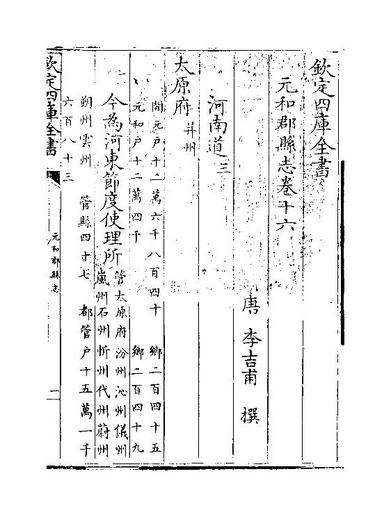 欽定四庫全書
元和郡縣志卷十六
唐 李吉甫 撰
河南道三
太原府 并州
開元戶十二萬六千八百四十 鄉二百四十五
元和戶十二萬四千 鄉二百四十九
今為河東節度使理所
管太原府汾州沁州儀州
嵐州石州忻州代州蔚州
朔州雲州 管縣四十七 都管戶十五萬一千
六百八十三
欽定四庫全書
元和郡縣志
一